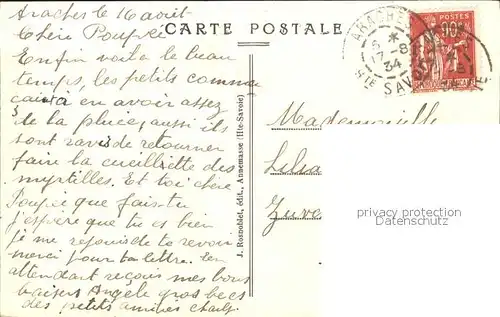 Araches le 16 août
CARTE POSTALE
Chère Poupée
Enfin voilà le beau
temps, les petits comme
çaient à en avoir assez
de la pluie, aussi ils
sont ravis de retourner
faire la cueillette des
myrtilles. Et toi chère
Poupée que fais tu
j'espère que tu es bien
je me rejouis de te revoir
merci pour ta lettre. En
attendant reçois mes bons
baisers Angèle gros becs
des petits amies
J. Rosnoblet, édit., Annemasse (Hte-Savoie)
ARACHES
17-8
34
Hte SAVOIE
POSTES
Mademoiselle
privacy protection
Datenschutz